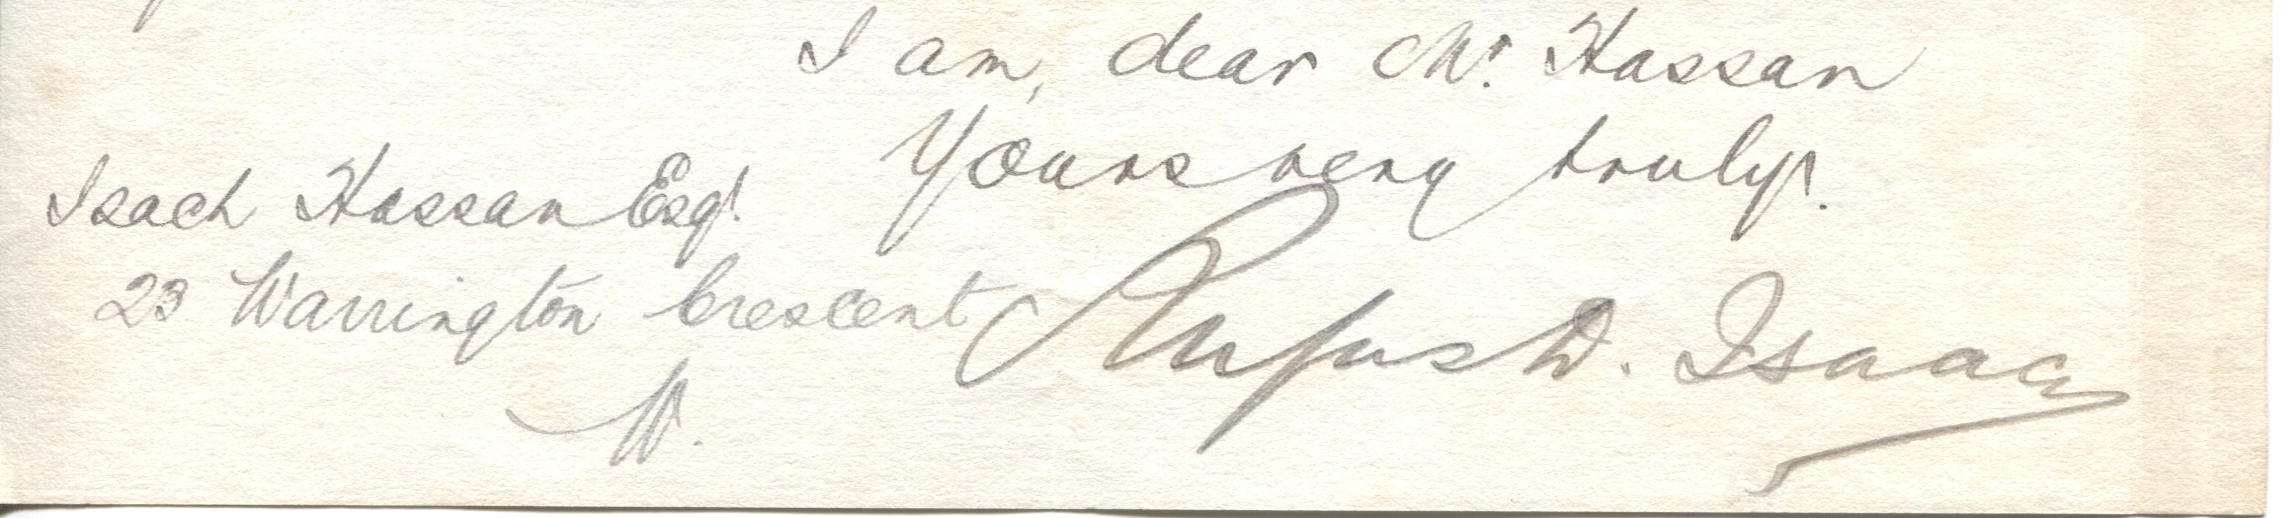 I am, dear Mr. Hassan
Yours very truly.
Isach Hassan Esqr.
23 Warrington Crescent
W.
Rufus D. Isaacs